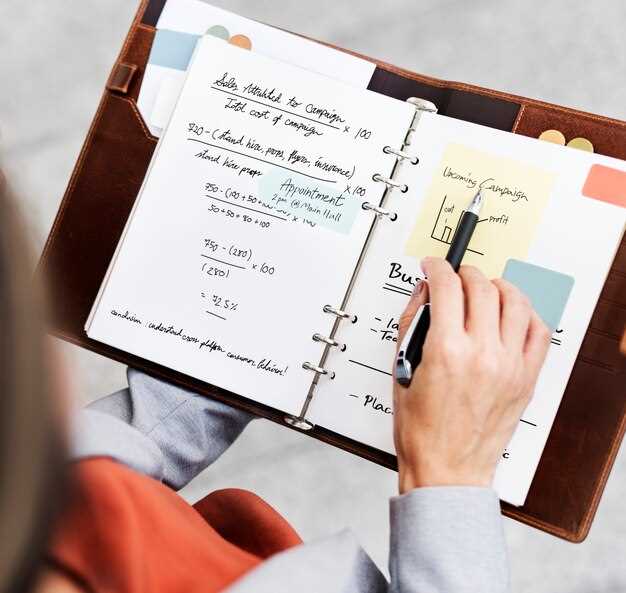 Sales Attributed to Campaign
Total Cost of campaign × 100
720 - (stand hire, props, flyers, insurance)
stand hire, props × 100
Appointment
2 pm @ Main Hall
750 - (100 + 50 +
100 + 50 + 50 + 80
750 - (280)
(280) × 100
= 72.5%
conclusion : understand cross platform consumer behaviour!
Upcoming Campaign
cost
profit
Busi
- 
- 
Te
- Place